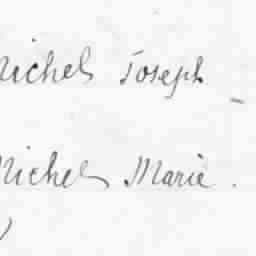 Michel Joseph -
Michel Marie.